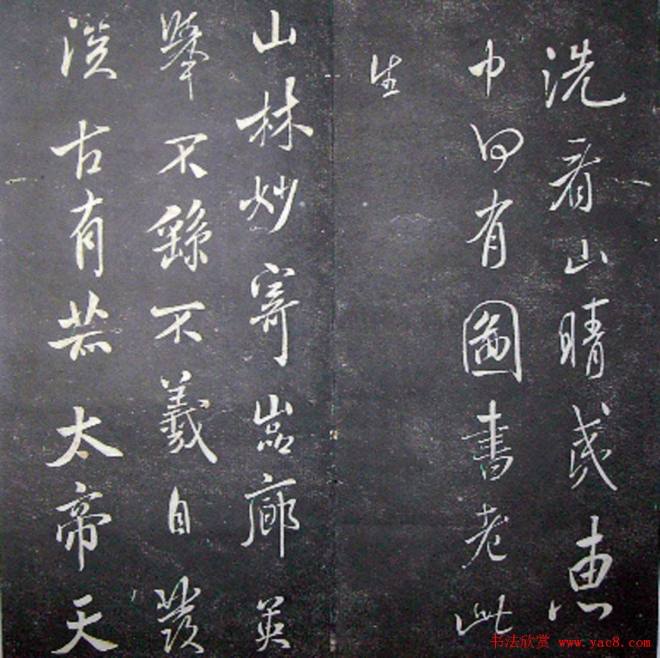 洗看山晴或惠
巾有圖書老此
生
山林妙寄嵓廊英
舉不繇不羲自發
淡古有芒太帝天
书法欣赏 www.yac8.com